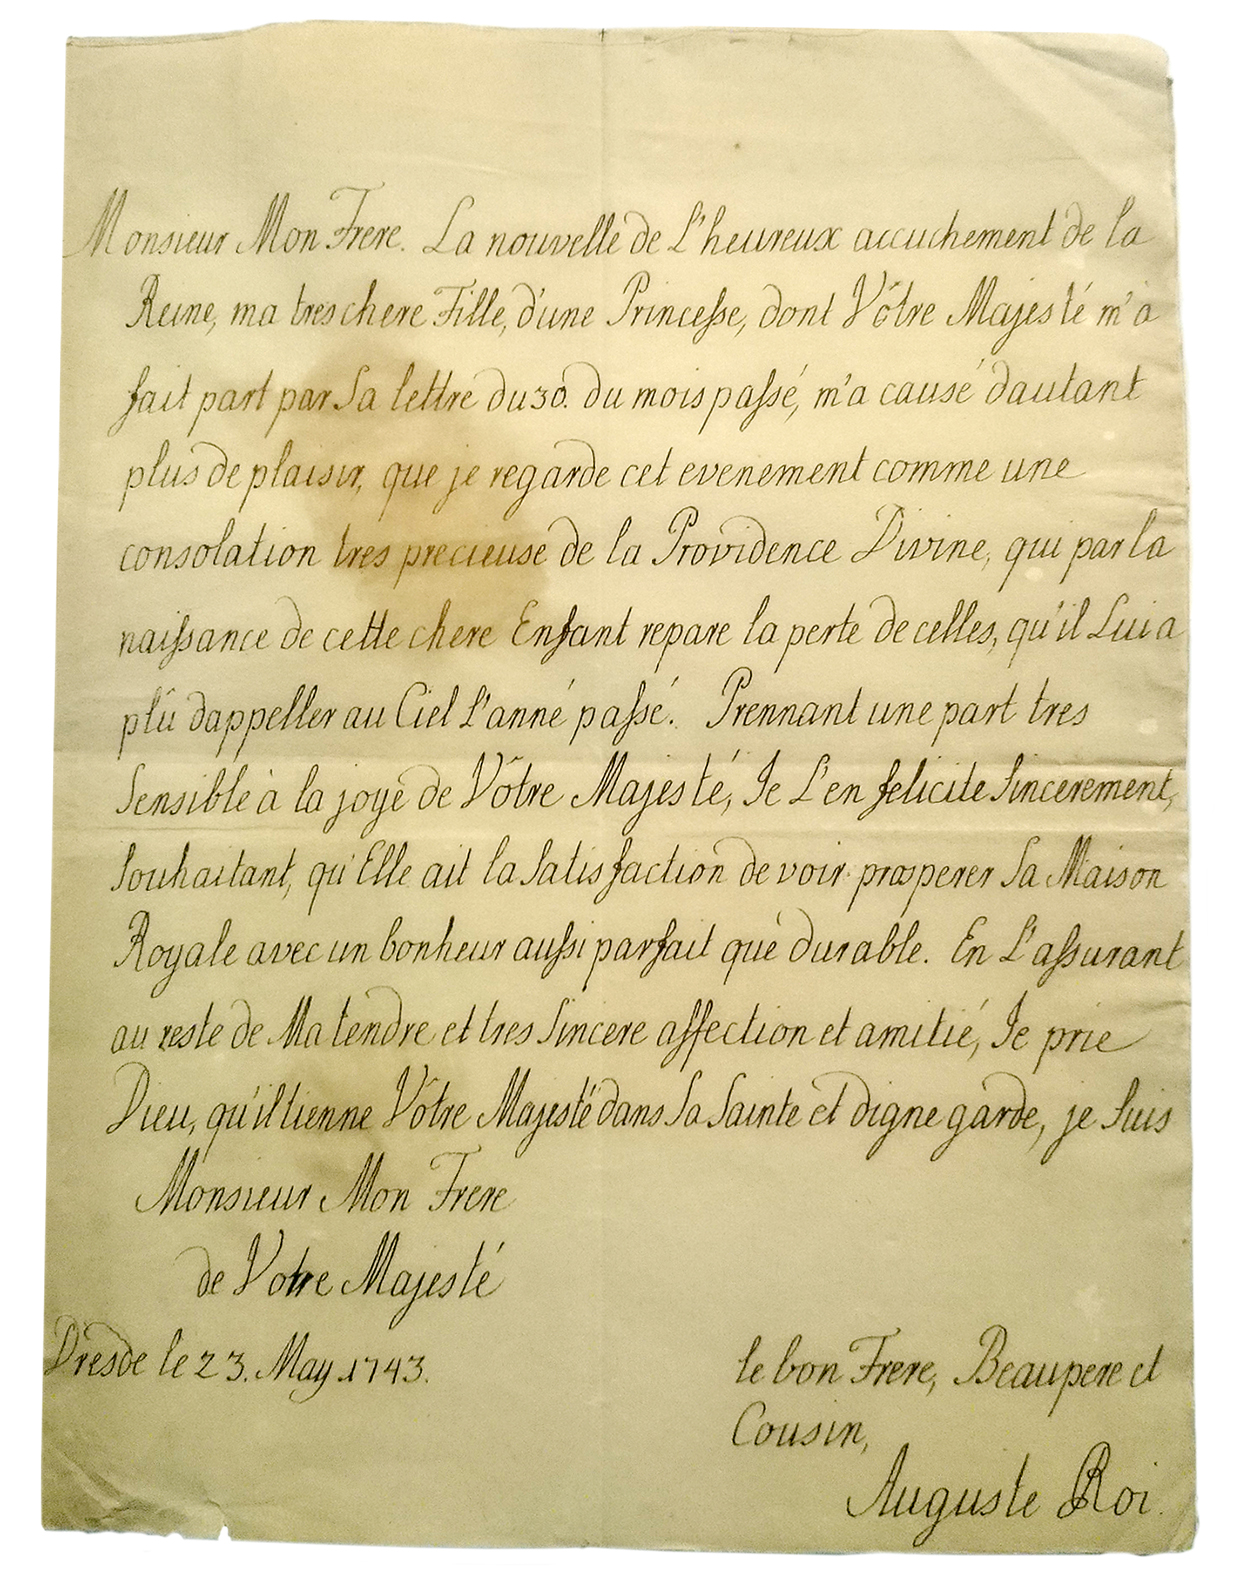 Monsieur Mon Frere. La nouvelle de L'heureux accuchement de la
Reine, ma treschere Fille, d'une Princesse, dont Vôtre Majesté m'a
fait part par Sa lettre du 30. du mois passé, m'a causé dautant
plus de plaisir, que je regarde cet evenement comme une
consolation tres precieuse de la Providence Divine, qui par la
naissance de cette chere Enfant repare la perte de celles, qu'il Lui a
plû dappeller au Ciel L'anné passé. Prennant une part tres
Sensible à la joye de Vôtre Majesté, Je L'en felicite Sincerement,
Souhaitant, qu'Elle ait la Satisfaction de voir prosperer Sa Maison
Royale avec un bonheur aussi parfait que durable. En L'assurant
au reste de Ma tendre et tres Sincere affection et amitié, Je prie
Dieu, qu'il tienne Vôtre Majesté dans Sa Sainte et digne garde, je Suis
Monsieur Mon Frere
de Votre Majesté
Dresde le 23. May 1743.
le bon Frere, Beaupere et
Cousin,
Auguste Roi.